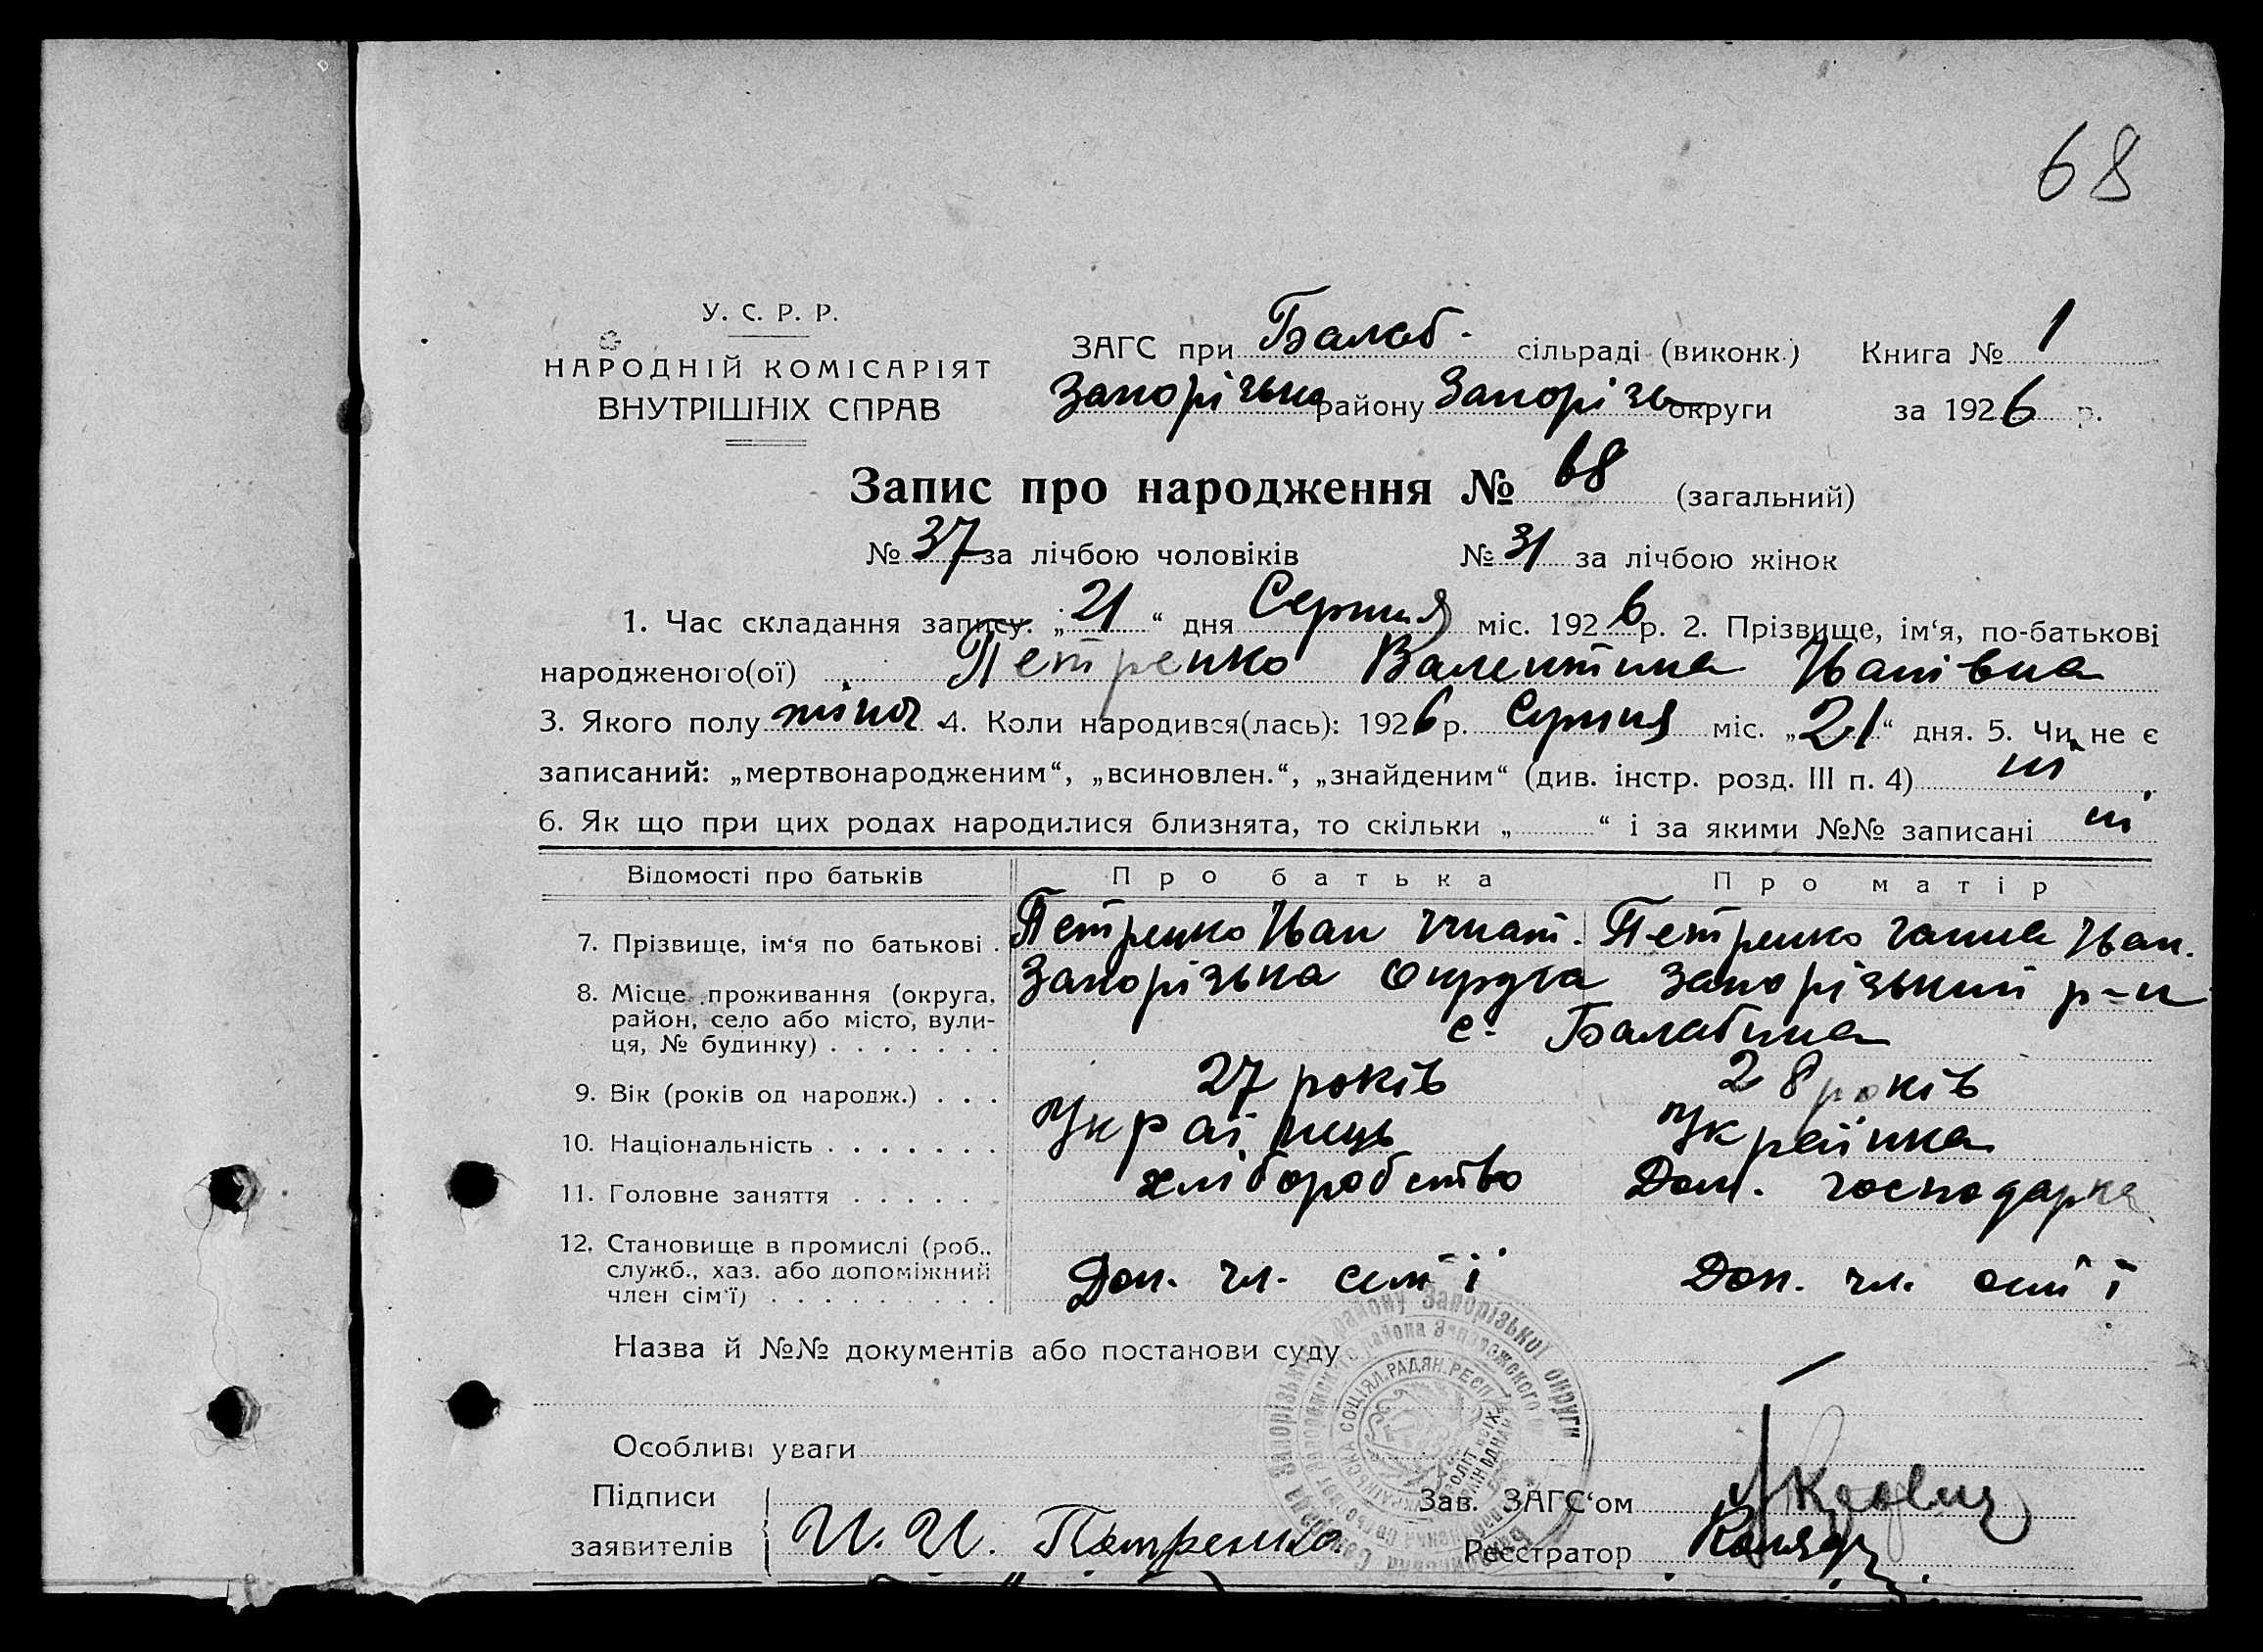 68
У. С. Р. Р.
НАРОДНІЙ КОМІСАРІЯТ
ВНУТРІШНІХ СПРАВ
ЗАГС при Балаб. сільраді (виконк.) Книга № 1
Запорізька району Запорізь округи за 1926 р.
Запис про народження № 68 (загальний)
№ 37 за лічбою чоловіків № 31 за лічбою жінок
1. Час складання запису. „21“ дня Серпня міс. 1926 р. 2. Прізвище, ім‘я, по-батькові
народженого(ої) Петренко Валентина Іванівна
3. Якого полу жіноч. 4. Коли народився(лась): 1926 р. Серпня міс. „21“ дня. 5. Чи не є
записаний: „мертвонародженим“, „всиновлен.“, „знайденим“ (див. інстр. розд. III п. 4) ні
6. Як що при цих родах народилися близнята, то скільки „ “ і за якими №№ записані ні
Відомості про батьків Про батька Про матір
7. Прізвище, ім‘я по батькові . Петренко Іван Гнат. Петренко Ганна Іван.
8. Місце проживання (округа, Запорізька Округа Запорізький р-н
район, село або місто, вули-
ця, № будинку) . . . . . . . с. Балабина
9. Вік (років од народж.) . . . 27 років 28 років
10. Національність . . . . . . . Українець Українка
11. Головне заняття . . . . . хліборобство Дом. господарка
12. Становище в промислі (роб.,
служб., хаз. або допоміжний Доп. чл. сем‘ї Доп. чл. сем‘ї
член сім‘ї) . . . . . . . . .
Назва й №№ документів або постанови суду
Особливі уваги
Підписи Зав. ЗАГС‘ом
заявителів И. И. Петренко Реєстратор
району Запорізької округи
района Запорожского
СОЦІЯЛ. РАДЯН. РЕСП.